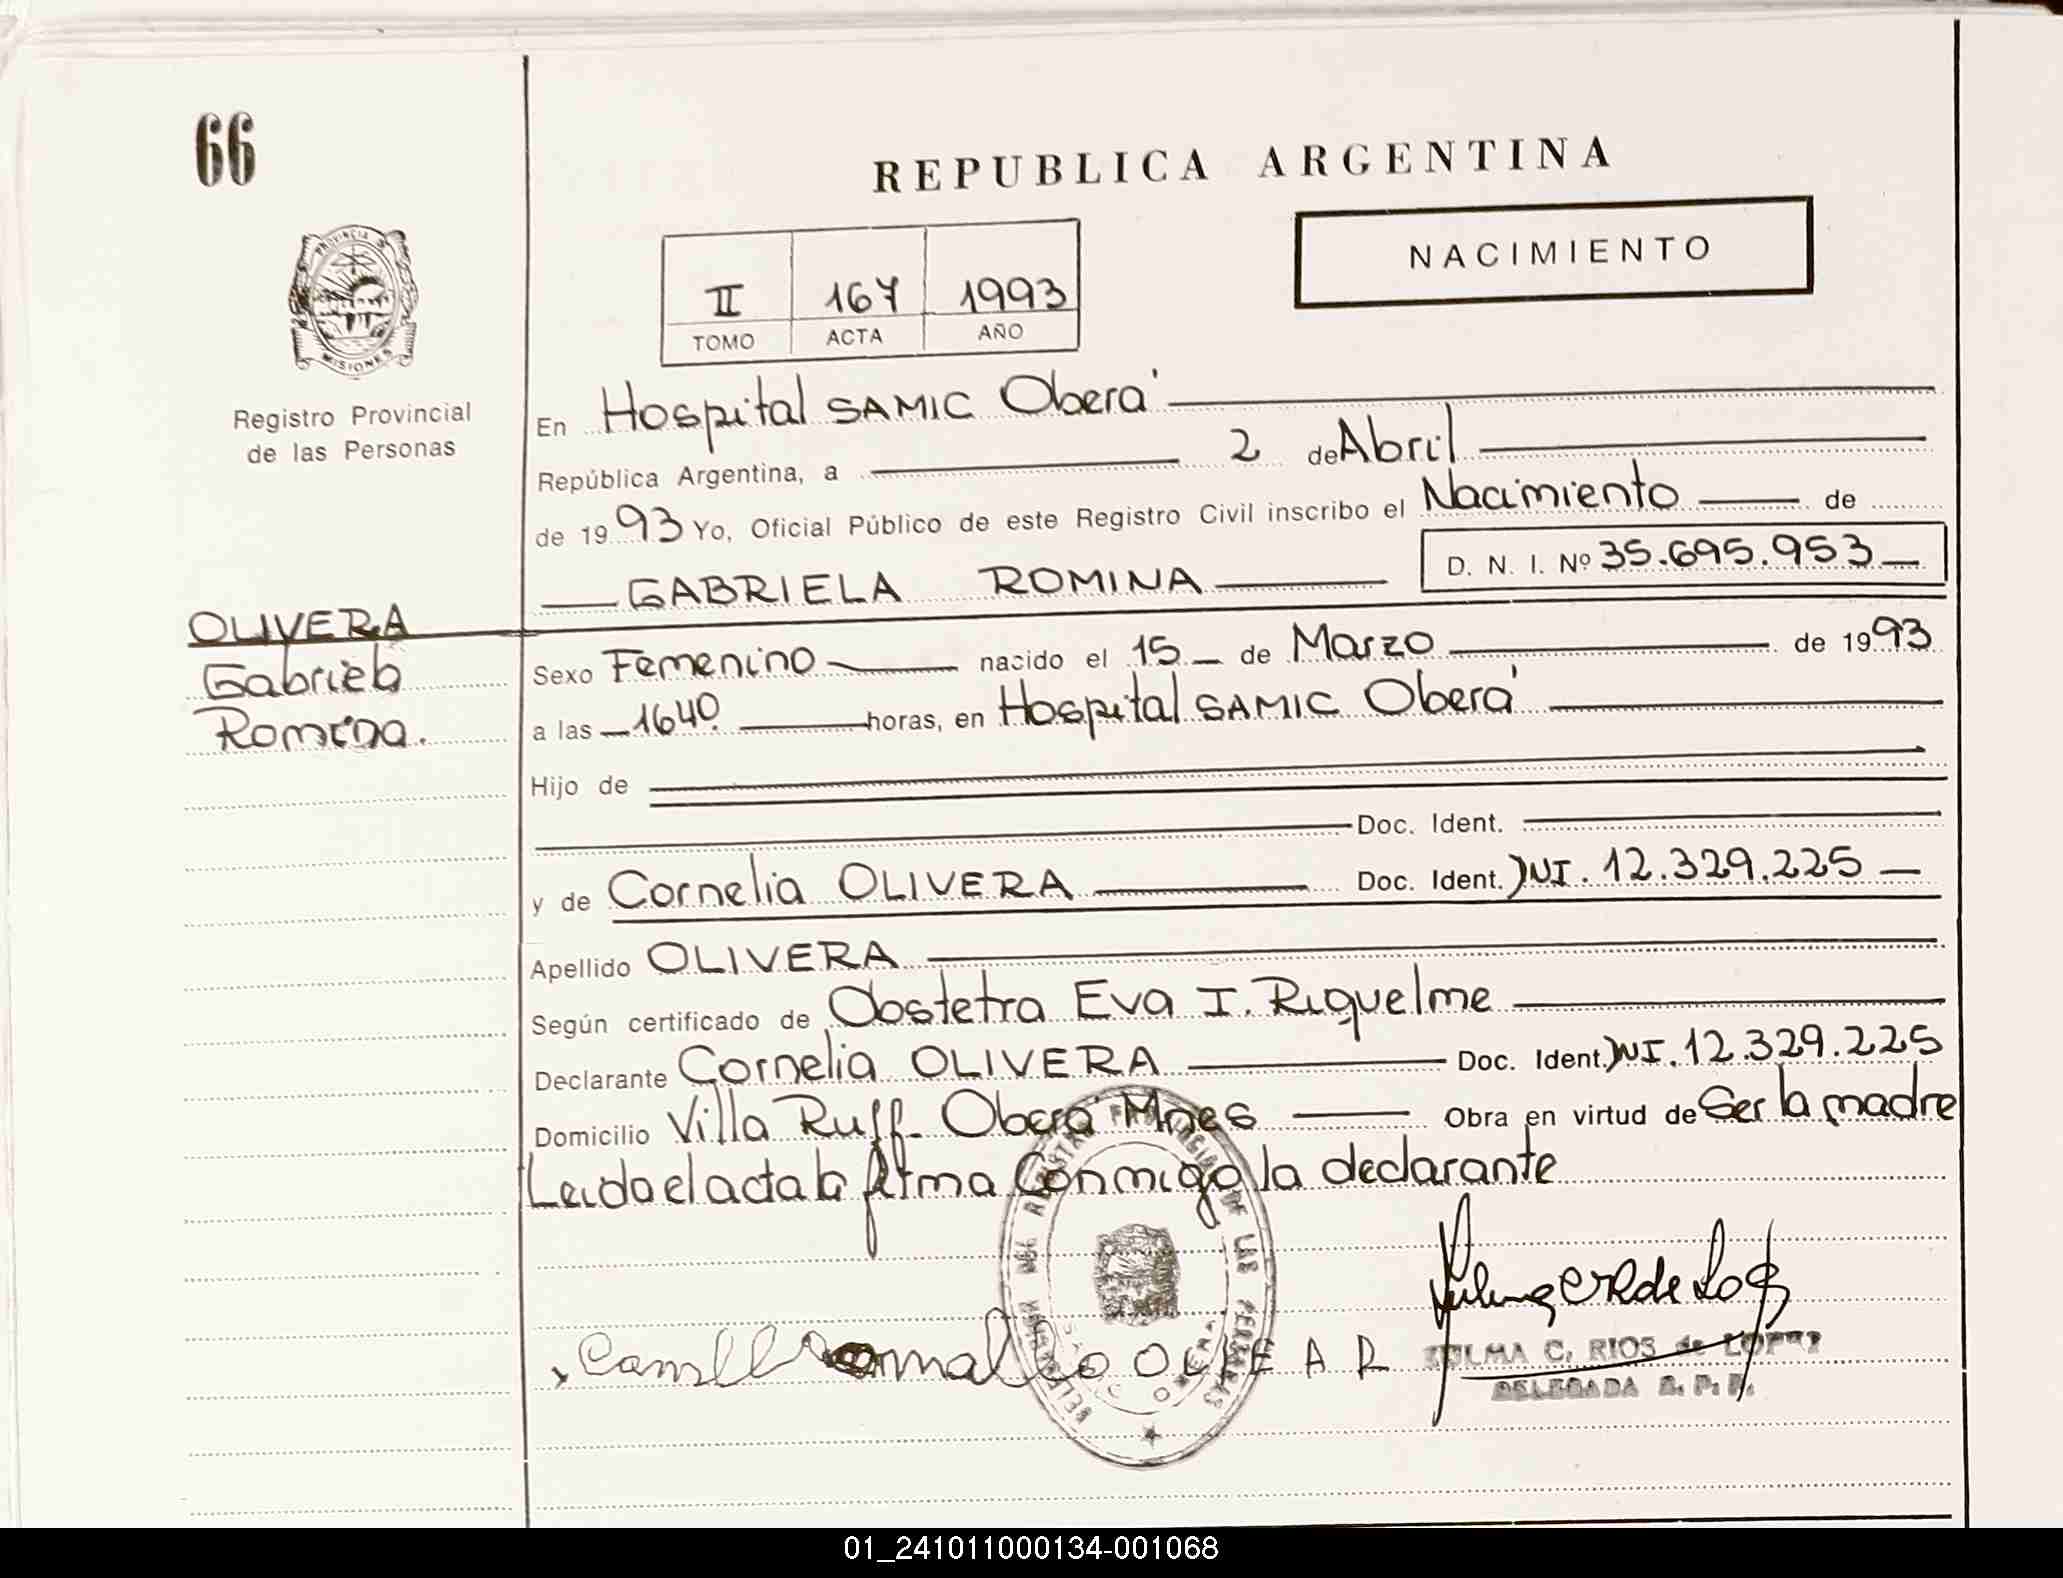 66
REPUBLICA ARGENTINA
NACIMIENTO
II 167 1993
TOMO ACTA AÑO
PROVINCIA DE
MISIONES
Registro Provincial
de las Personas
En Hospital SAMIC Oberá
República Argentina, a 2 de Abril
de 1993 Yo, Oficial Público de este Registro Civil inscribo el Nacimiento de
GABRIELA ROMINA D. N. I. Nº 35.695.953
OLIVERA
Gabriela
Romina.
Sexo Femenino nacido el 15 de Marzo de 1993
a las 1640 horas, en Hospital SAMIC Oberá
Hijo de
Doc. Ident.
y de Cornelia OLIVERA Doc. Ident. DNI. 12.329.225
Apellido OLIVERA
Según certificado de Obstetra Eva I. Riquelme
Declarante Cornelia OLIVERA Doc. Ident. DNI. 12.329.225
Domicilio Villa Ruff. Oberá Mnes Obra en virtud de Ser la madre
Leida el acta la firma Conmigo la declarante
ZULMA C. RIOS de LOPEZ
DELEGADA R. P. P.
01_241011000134-001068